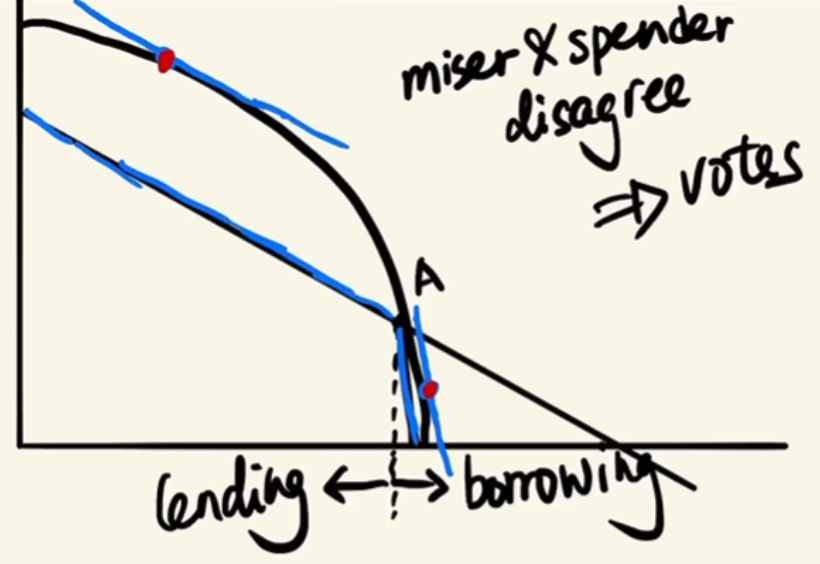 miser & spender
disagree
⇒ votes
A
lending ←→ borrowing